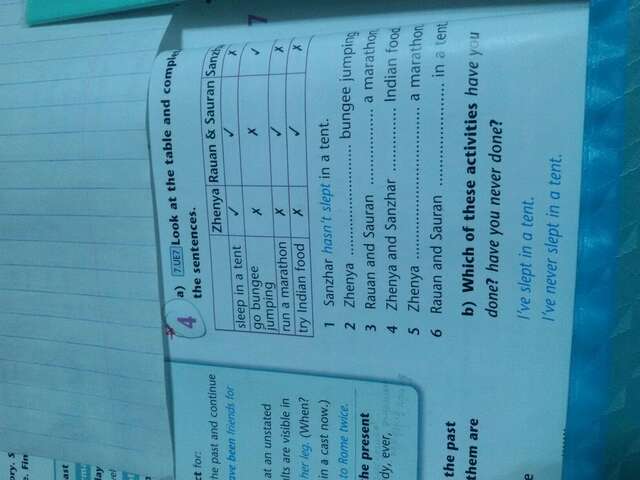 ast
ct for:
the past and continue
ave been friends for
at an unstated
lts are visible in
her leg. (When?
in a cast now.)
to Rome twice.
he present
dy, ever,
the past
them are
4 a) 7.UE7 Look at the table and comple
the sentences.
Zhenya Rauan & Sauran Sanzh
sleep in a tent ✓ ✓ ✗
go bungee ✗ ✗ ✓
jumping
run a marathon ✗ ✓ ✗
try Indian food ✗ ✓ ✗
1 Sanzhar hasn't slept in a tent.
2 Zhenya .................... bungee jumping
3 Rauan and Sauran .............. a marathon
4 Zhenya and Sanzhar .............. Indian food
5 Zhenya .................................. a marathon
6 Rauan and Sauran ........................ in a tent
b) Which of these activities have you
done? have you never done?
I've slept in a tent.
I've never slept in a tent.
7